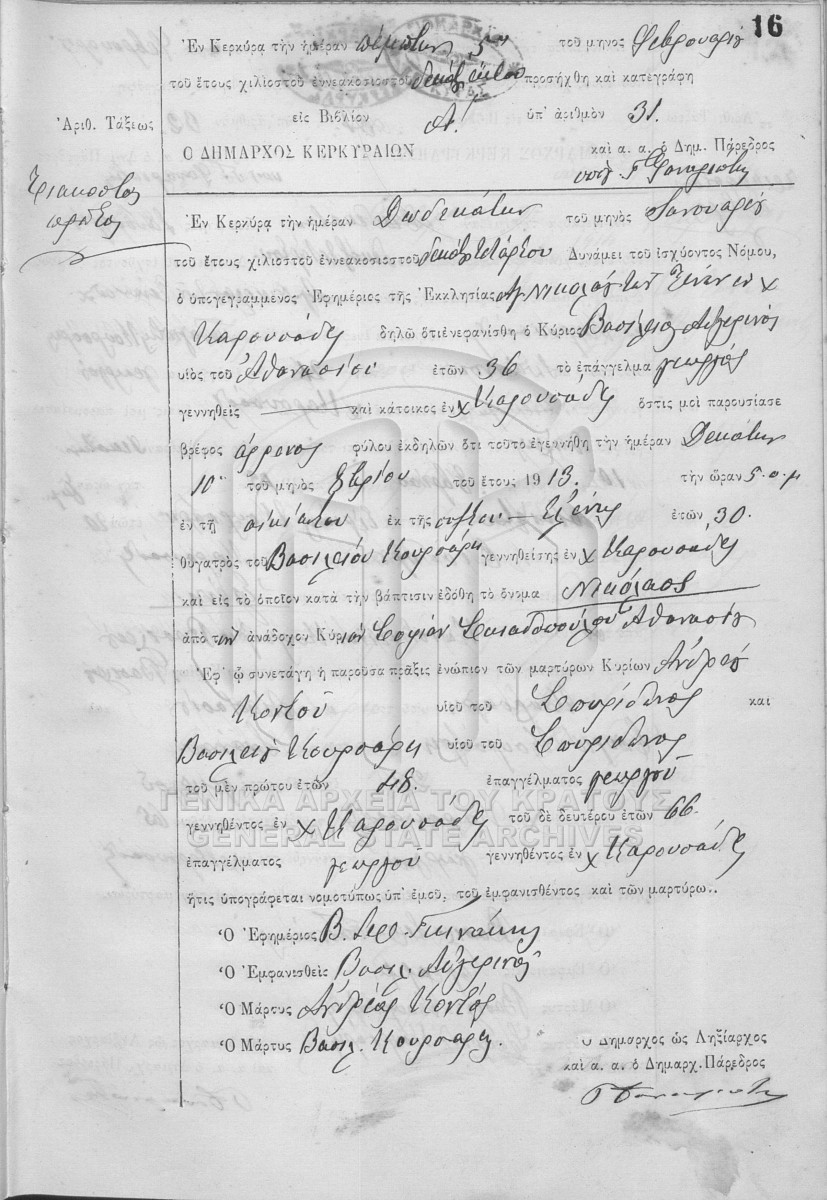 16
Ἐν Κερκύρᾳ τὴν ἡμέραν πέμπτην 5ην τοῦ μηνος Φεβρουαρίου
τοῦ ἔτους χιλιοστοῦ ἐννεακοσιοστοῦ δεκάτου ἕκτου προσήχθη καὶ κατεγράφη
Ἀριθ. Τάξεως εἰς Βιβλίον Α΄. ὑπ' ἀριθμὸν 31.
Ο ΔΗΜΑΡΧΟΣ ΚΕΡΚΥΡΑΙΩΝ καὶ α. α. ὁ Δημ. Πάρεδρος
Τριακοστὸς
πρῶτος
Ἐν Κερκύρᾳ τὴν ἡμέραν Δωδεκάτην τοῦ μηνὸς Ιανουαρίου
τοῦ ἔτους χιλιοστοῦ ἐννεακοσιοστοῦ δεκάτου τετάρτου Δυνάμει τοῦ ἰσχύοντος Νόμου,
ὁ ὑπογεγραμμένος Ἐφημέριος τῆς Ἐκκλησίας Αγ Νικολάου των Ξένων χ
Καρουσάδες δηλῶ ὅτι ἐνεφανίσθη ὁ Κύριος Βασίλειος Αυγερινός
υἱὸς τοῦ Ἀθανασίου ἐτῶν 36 τὸ ἐπάγγελμα γεωργός
γεννηθεὶς καὶ κάτοικος ἐν χ Καρουσάδες ὅστις μοὶ παρουσίασε
βρέφος ἄρρενος φύλου ἐκδηλῶν ὅτι τοῦτο ἐγεννήθη τὴν ἡμέραν Δεκάτην
10 τοῦ μηνὸς 8βρίου τοῦ ἔτους 1913. τὴν ὥραν 5 π μ
ἐν τῇ οἰκίᾳ του ἐκ τῆς συζύγου Ἑλένης ἐτῶν 30.
θυγατρὸς τοῦ Βασιλείου Κουρσάρη γεννηθείσης ἐν χ Καρουσάδες
καὶ εἰς τὸ ὁποῖον κατὰ τὴν βάπτισιν ἐδόθη τὸ ὄνομα Νικόλαος
ἀπὸ τὴν ἀνάδοχον Κυρίαν Σοφίαν Ἀθανασίου
Ἐφ' ᾧ συνετάγη ἡ παροῦσα πρᾶξις ἐνώπιον τῶν μαρτύρων Κυρίων Ἀνδρέου
Κοντοῦ υἱοῦ τοῦ Σπυρίδωνος καὶ
Βασιλείου Κουρσάρη υἱοῦ τοῦ Σπυρίδωνος
τοῦ μὲν πρώτου ἐτῶν 48. ἐπαγγέλματος γεωργοῦ
γεννηθέντος ἐν χ Καρουσάδες τοῦ δὲ δευτέρου ἐτῶν 66.
ἐπαγγέλματος γεωργοῦ γεννηθέντος ἐν χ Καρουσάδες
ἥτις ὑπογράφεται νομοτύπως ὑπ' ἐμοῦ, τοῦ ἐμφανισθέντος καὶ τῶν μαρτύρω..
Ὁ Ἐφημέριος Β. Ιερ.
Ὁ Ἐμφανισθεὶς Βασιλ. Αὐγερινὸς
Ὁ Μάρτυς Ἀνδρέας Κοντός
Ὁ Μάρτυς Βασιλ. Κουρσάρης.
Ὁ Δήμαρχος ὡς Ληξίαρχος
καὶ α. α. ὁ Δημαρχ. Πάρεδρος
ΓΕΝΙΚΑ ΑΡΧΕΙΑ ΤΟΥ ΚΡΑΤΟΥΣ
GENERAL STATE ARCHIVES